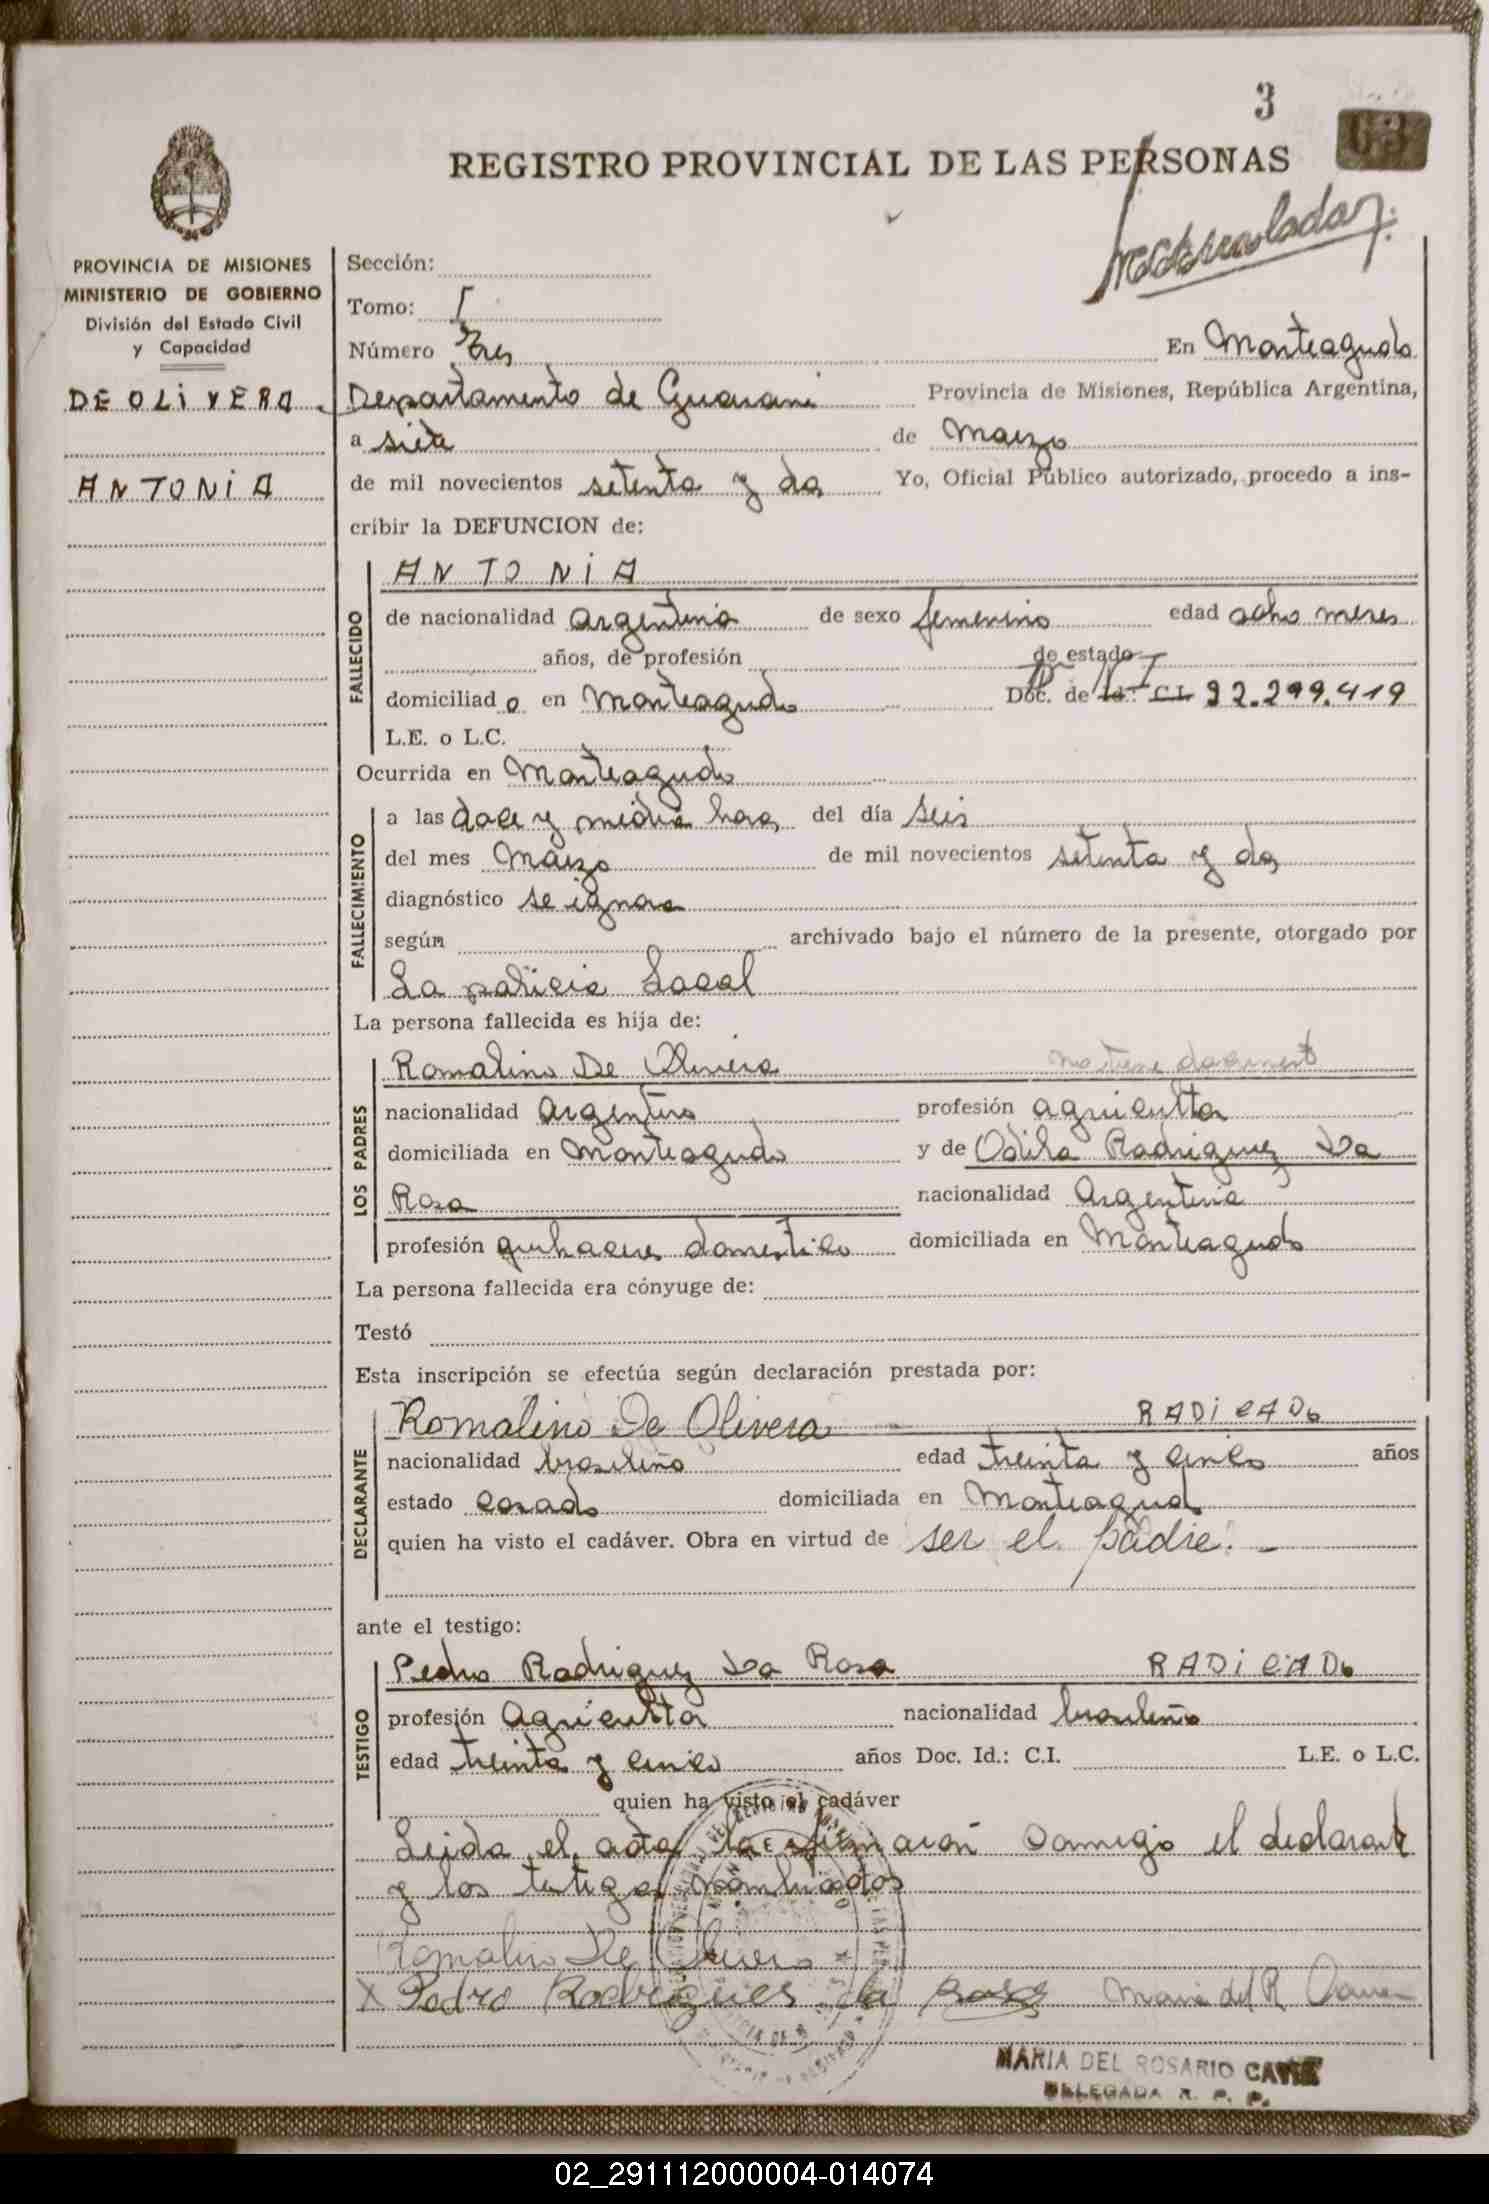 3
03
REGISTRO PROVINCIAL DE LAS PERSONAS
PROVINCIA DE MISIONES
MINISTERIO DE GOBIERNO
División del Estado Civil
y Capacidad
DE OLIVERA
ANTONIA
Sección:
Tomo: I
Número Tres En Monteagudo
Departamento de Guarani Provincia de Misiones, República Argentina,
a siete de Marzo
de mil novecientos setenta y dos Yo, Oficial Público autorizado, procedo a ins-
cribir la DEFUNCION de:
FALLECIDO
ANTONIA
de nacionalidad argentina de sexo femenino edad ocho meses
años, de profesión de estado
domiciliado en Monteagudo Doc. de Id.: C.I. D N I 92.299.419
L.E. o L.C.
Ocurrida en Monteagudo
FALLECIMIENTO
a las doce y media horas del día seis
del mes Marzo de mil novecientos setenta y dos
diagnóstico se ignora
según archivado bajo el número de la presente, otorgado por
La policia Local
La persona fallecida es hija de:
LOS PADRES
Romalino De Olivera no tiene document
nacionalidad Argentino profesión agricultor
domiciliada en Monteagudo y de Odila Rodriguez Da
Rosa nacionalidad Argentina
profesión quehaceres domestico domiciliada en Monteagudo
La persona fallecida era cónyuge de:
Testó
Esta inscripción se efectúa según declaración prestada por:
DECLARANTE
Romalino De Olivera RADICADO
nacionalidad brasileño edad treinta y cinco años
estado casado domiciliada en Monteagudo
quien ha visto el cadáver. Obra en virtud de ser el padre. -
ante el testigo:
TESTIGO
Pedro Rodriguez Da Rosa RADICADO
profesión Agricultor nacionalidad brasileño
edad treinta y cinco años Doc. Id.: C.I. L.E. o L.C.
quien ha visto el cadáver
Leida el acta la firmaron conmigo el declarant
y los testigos nombrados
Romalino De Olivera
X Pedro Rodrigues da Rosa Maria del R
MARIA DEL ROSARIO
DELEGADA R. P. P.
02_291112000004-014074